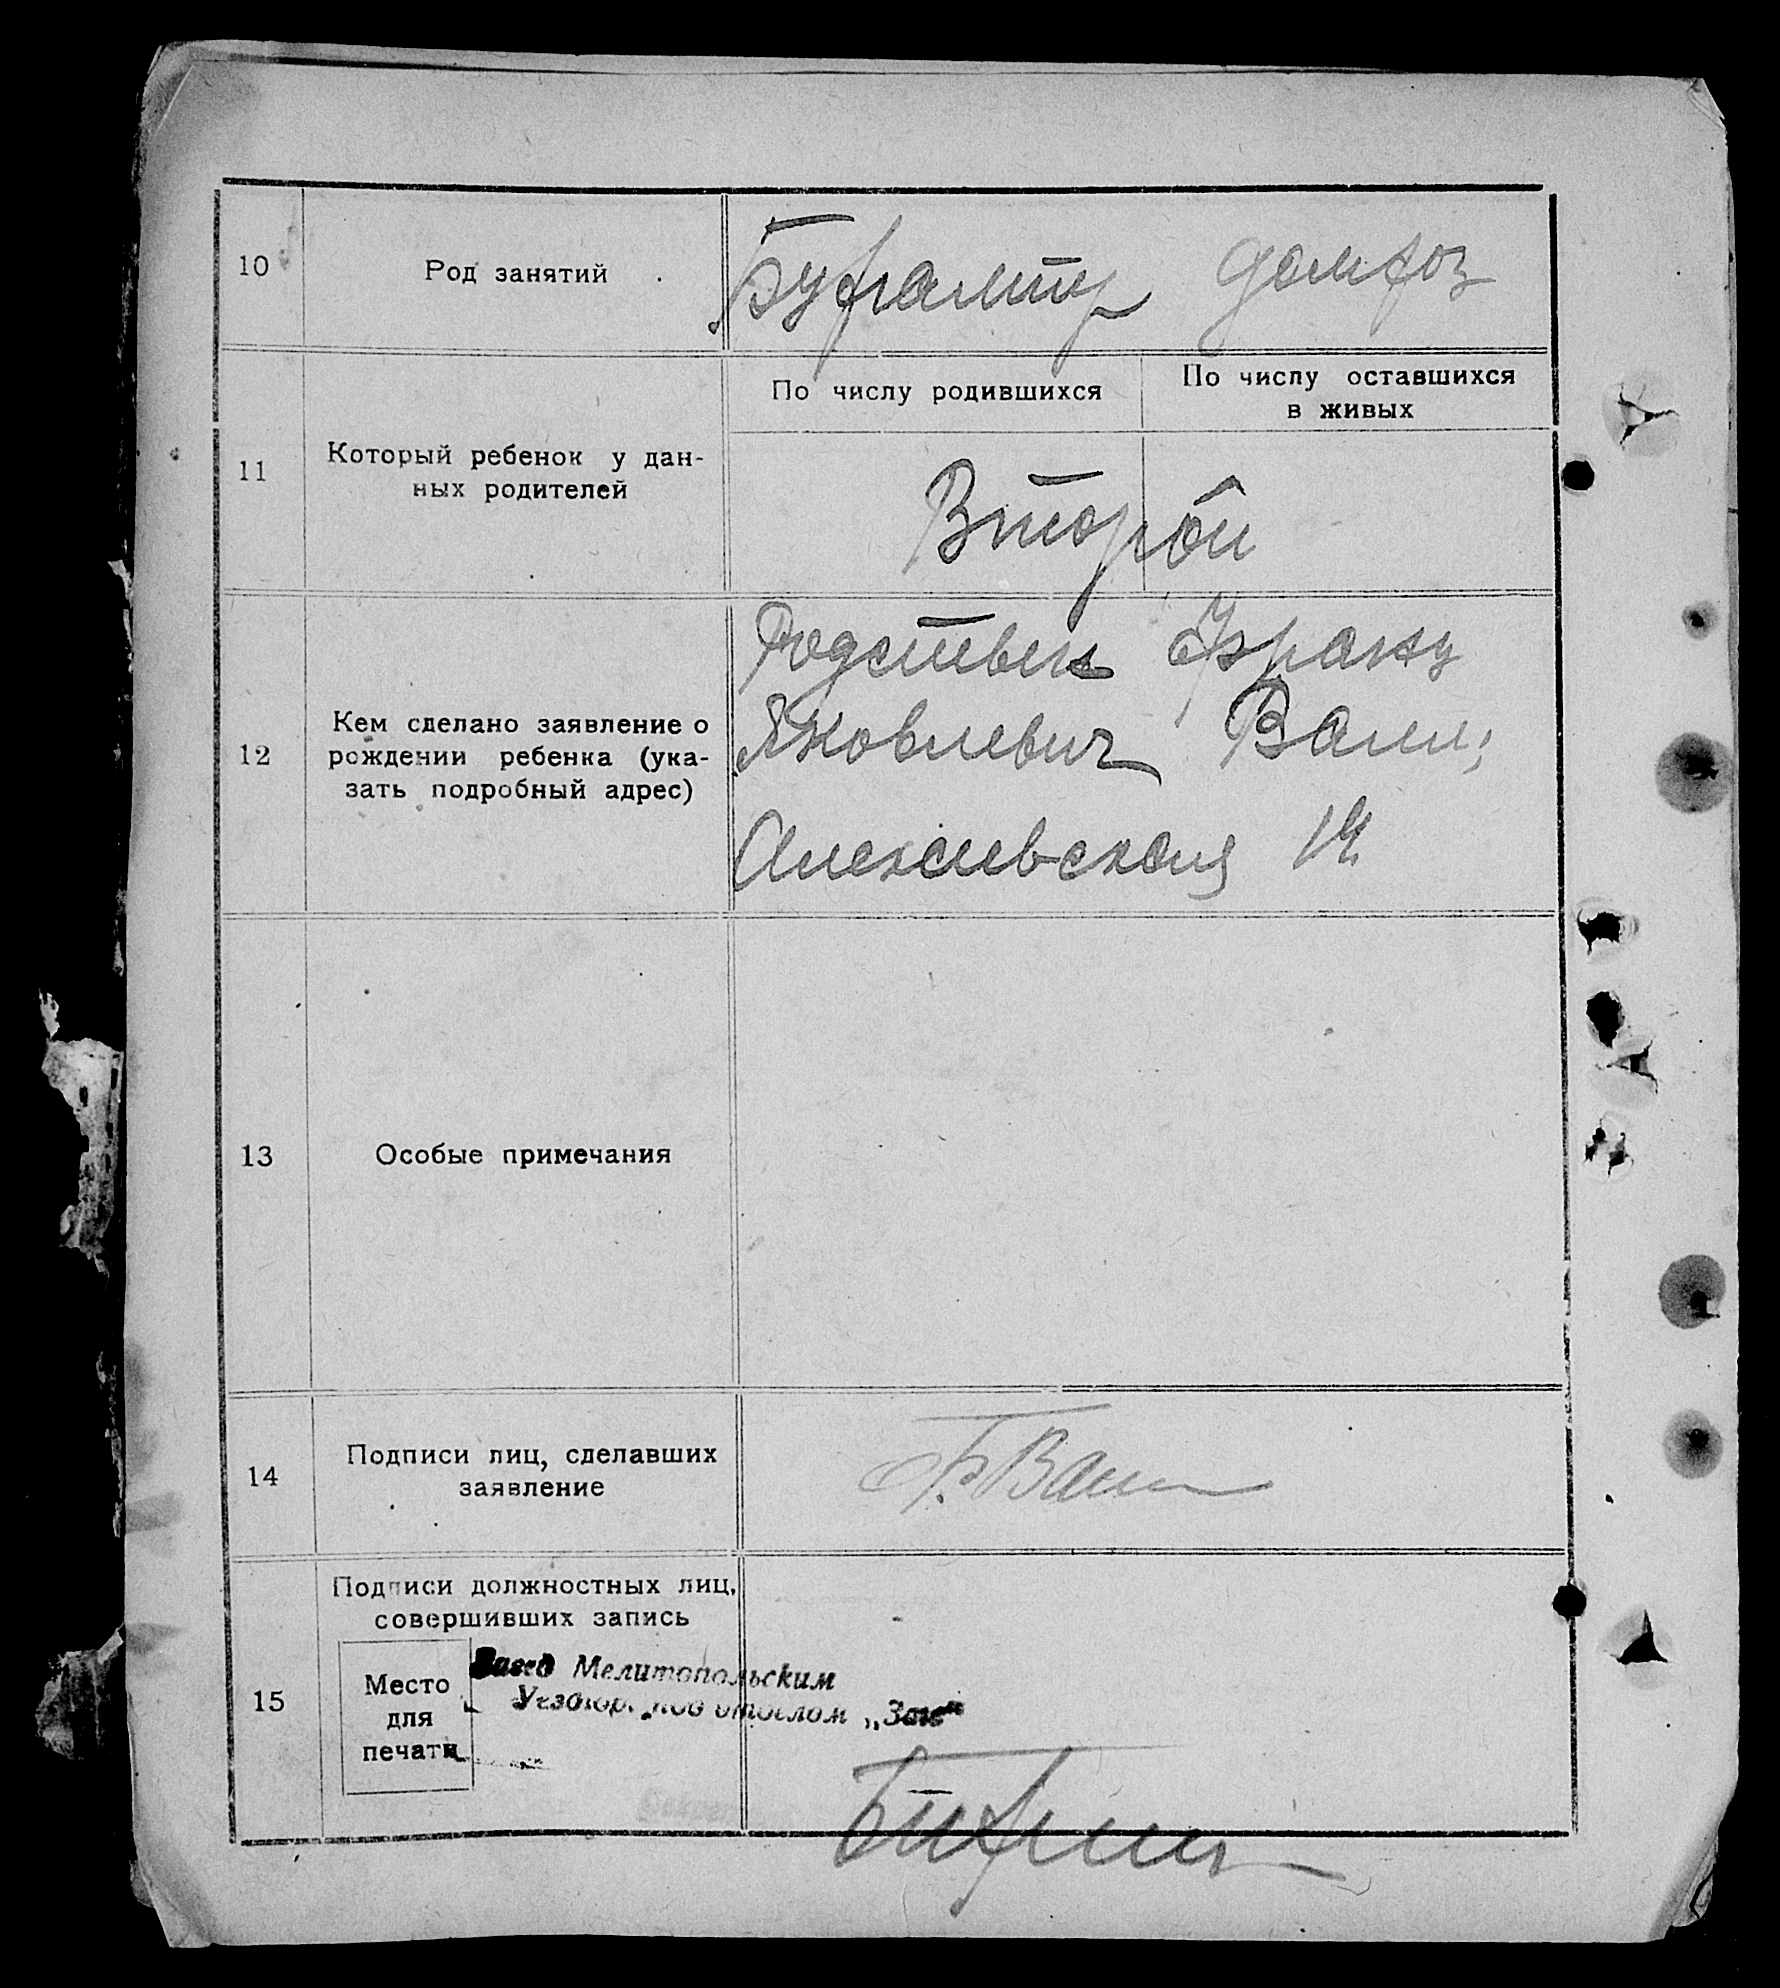 10
Род занятий
Бухгалтер домхоз
11
Который ребенок у дан-
ных родителей
По числу родившихся
По числу оставшихся
в живых
Второй
12
Кем сделано заявление о
рождении ребенка (ука-
зать подробный адрес)
Родствен Франц
Яковлевич Валл,
Алексеевская 14
13
Особые примечания
14
Подписи лиц, сделавших
заявление
Ф. Валл
15
Подписи должностных лиц,
совершивших запись
Место
для
печати
Завед Мелитопольским
отделом „Загс“